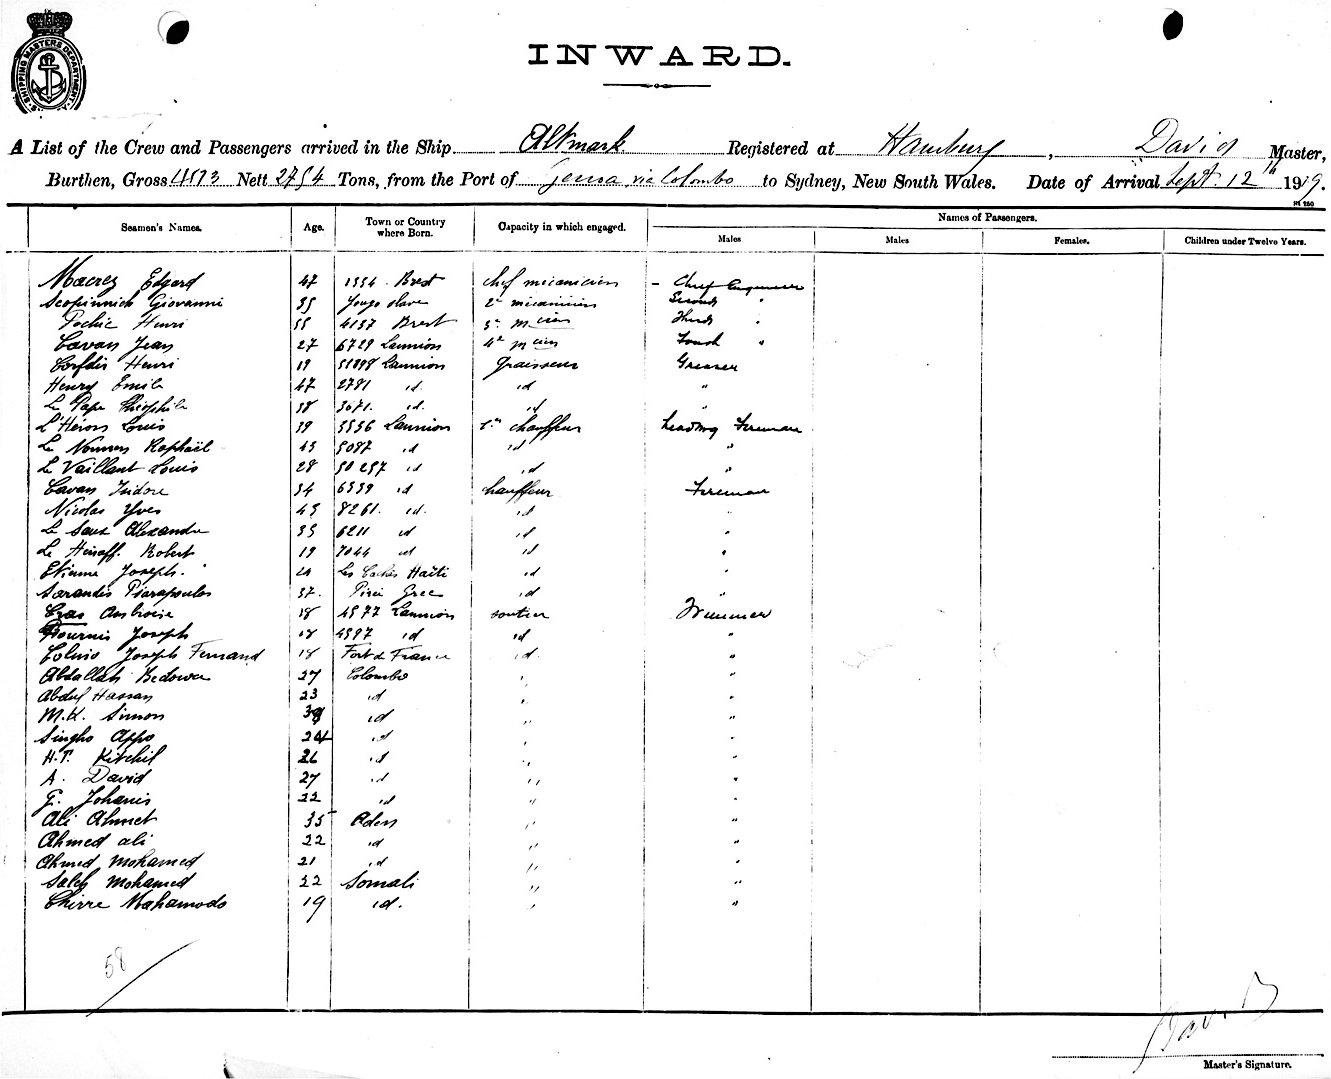 SHIPPING MASTERS DEPARTMENT
INWARD.
A List of the Crew and Passengers arrived in the Ship Altmark Registered at Hamburg, David Master,
Burthen, Gross 4573 Nett 2754 Tons, from the Port of Genoa via Colombo to Sydney, New South Wales. Date of Arrival Sept. 12th 1919.
Seamen's Names. Age. Town or Country where Born. Capacity in which engaged. Names of Passengers.
Males Males Females. Children under Twelve Years.
Edgard 47 1354 Brest chef mécanicien – Chief Engineer
Giovanni 35 Yougo slave 2e mécanicien Second "
Henri 55 4137 Brest 3e mcien Third "
Cavan Jean 27 6729 Lannion 4e mcien Fourth "
Henri 19 Lannion graisseur Greaser
Henry Emile 47 2781 id. id "
Le Pape Théophile 38 3071. id. id "
L'Héron Louis 39 3556 Lannion 1er chauffeur Leading Fireman
Le Raphaël 43 5087 id id "
Le Vaillant Louis 28 50257 id id "
Cavan Isidore 34 6339 id chauffeur Fireman
Nicolas Yves 45 8261. id. id "
Le Saux Alexandre 35 6211 id id "
Le Robert 19 7044 id id "
Etienne Joseph. 21 Les Cayes Haïti id "
Sarandis 37. Pirée Grec id "
Cras Ambroise 18 4577 Lannion soutier Trimmer
Joseph 18 4597 id id "
Joseph Fernand 18 Fort de France id. "
Abdallah Bedowa 27 Colombo " "
Abdul Hassan 23 id " "
M.K. Simon 38 id " "
Singho Appo 24 id " "
H.T. Kitchil 26 id " "
A. David 27 id " "
G. Johanis 22 id " "
Ali Ahmet 35 Aden " "
Ahmed ali 22 id " "
Ahmed Mohamed 21 id " "
Saleh Mohamed 22 Somali " "
Chirre Mahamodo 19 id. " "
58
David
Master's Signature.